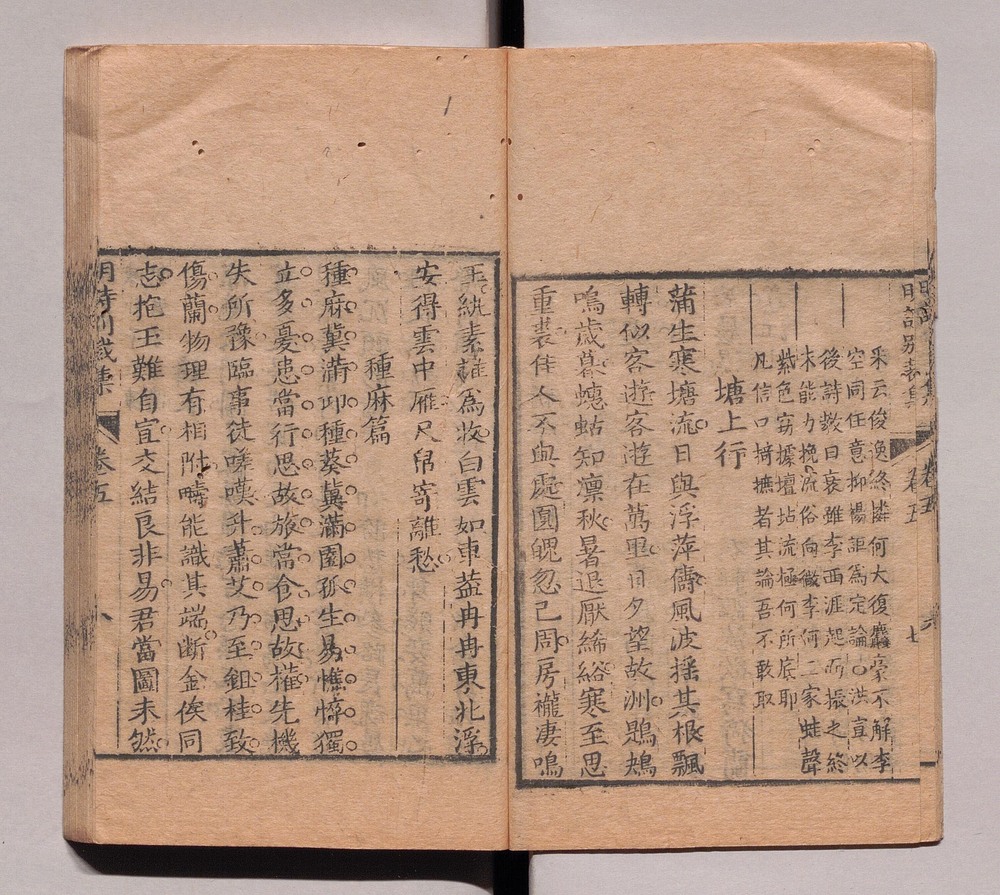 明詩別裁集 卷五 七
采云俊逸終憐何大復麤豪不解李
空同任意抑揚詎為定論○洪亶以
後詩教日衰雖李西涯起而振之終
未能力挽流俗向微李何二家蛙聲
紫色竊據壇坫流極何所底耶
凡信口掎摭者其論吾不敢取
塘上行
蒲生寒塘流日與浮萍儔風波揺其根飄
轉似客遊客遊在萬里日夕望故洲鶗鴂
鳴歲暮蟪蛄知凜秋暑退厭絺綌寒至思
重裘佳人不與處圓魄忽已周房櫳淒鳴
玉紈素誰為收白雲如車葢冉冉東北浮
安得雲中雁尺帛寄離愁
種麻篇
種麻冀滿卭種葵冀滿園孤生易憔悴獨
立多憂患當行思故旅當食思故權先機
失所豫臨事徒嘆嘆升蕭艾乃至鉏桂致
傷蘭物理有相附疇能識其端斷金俟同
志抱玉難自宣交結良非易君當圖未然
明詩別裁集 卷五 八